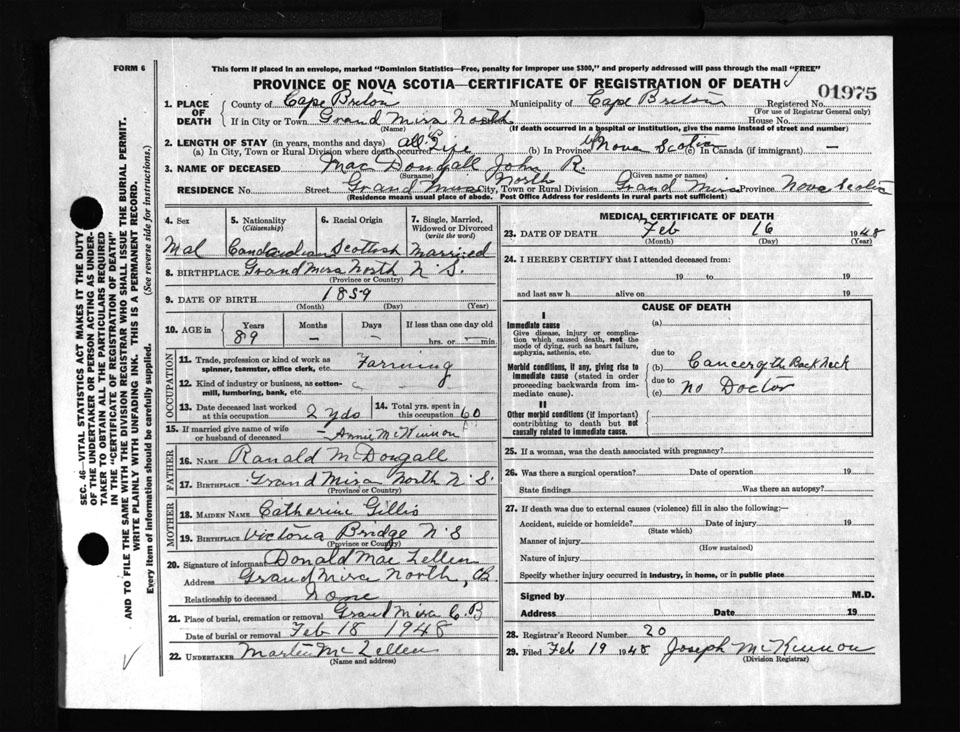 FORM 6
This form if placed in an envelope, marked "Dominion Statistics—Free, penalty for improper use $300," and properly addressed will pass through the mail "FREE"
PROVINCE OF NOVA SCOTIA—CERTIFICATE OF REGISTRATION OF DEATH
01975
1. PLACE OF DEATH
County of Cape Breton Municipality of Cape Breton Registered No.
(For use of Registrar General only)
If in City or Town Grand Mira North House No.
(Name) (If death occurred in a hospital or institution, give the name instead of street and number)
2. LENGTH OF STAY (in years, months and days)
(a) In City, Town or Rural Division where death occurred all Life (b) In Province Nova Scotia (c) In Canada (if immigrant) —
3. NAME OF DECEASED Mac Dougall John R.
(Surname) (Given name or names)
RESIDENCE No. Street Grand Mira North City, Town or Rural Division Grand Mira Province Nova Scotia
(Residence means usual place of abode. Post Office Address for residents in rural parts not sufficient)
4. Sex
Mal
5. Nationality
(Citizenship)
6. Racial Origin
Scottish
7. Single, Married, Widowed or Divorced
(write the word)
Married
8. BIRTHPLACE Grand Mira North N. S.
(Province or Country)
9. DATE OF BIRTH 1859
(Month) (Day) (Year)
10. AGE in
Years Months Days If less than one day old
89 — — hrs. or — min.
OCCUPATION
11. Trade, profession or kind of work as spinner, teamster, office clerk, etc. Farming
12. Kind of industry or business, as cotton-mill, lumbering, bank, etc.
13. Date deceased last worked at this occupation 2 yds
14. Total yrs. spent in this occupation 60
15. If married give name of wife or husband of deceased — Annie McKinnon
FATHER
16. NAME Ranald McDougall
17. BIRTHPLACE Grand Mira North N S.
(Province or Country)
MOTHER
18. MAIDEN NAME Catherine Gillis
19. BIRTHPLACE Victoria Bridge N S
(Province or Country)
20. Signature of informant Donald Mac Lellen
Address Grand Mira North, CB.
Relationship to deceased none
21. Place of burial, cremation or removal Grand Mira C. B
Date of burial or removal Feb 18 1948
22. UNDERTAKER Martin McLellen
(Name and address)
MEDICAL CERTIFICATE OF DEATH
23. DATE OF DEATH Feb 16 1948
(Month) (Day) (Year)
24. I HEREBY CERTIFY that I attended deceased from:
19 to 19
and last saw h alive on 19
CAUSE OF DEATH
I
Immediate cause
Give disease, injury or complication which caused death, not the mode of dying, such as heart failure, asphyxia, asthenia, etc.
(a)
due to
Morbid conditions, if any, giving rise to immediate cause (stated in order proceeding backwards from immediate cause).
(b) Cancer of the Back Neck
due to
(c) no Doctor
II
Other morbid conditions (if important) contributing to death but not causally related to immediate cause.
25. If a woman, was the death associated with pregnancy?
26. Was there a surgical operation? Date of operation 19
State findings Was there an autopsy?
27. If death was due to external causes (violence) fill in also the following:—
Accident, suicide or homicide? Date of injury 19
(State which)
Manner of injury
(How sustained)
Nature of injury
Specify whether injury occurred in industry, in home, or in public place
Signed by M.D.
Address Date 19
28. Registrar's Record Number 20
29. Filed Feb 19 1948 Joseph McKinnon
(Division Registrar)
SEC. 46—VITAL STATISTICS ACT MAKES IT THE DUTY
OF THE UNDERTAKER OR PERSON ACTING AS UNDERTAKER TO OBTAIN ALL THE PARTICULARS REQUIRED
IN THE "CERTIFICATE OF REGISTRATION OF DEATH"
AND TO FILE THE SAME WITH THE DIVISION REGISTRAR WHO SHALL ISSUE THE BURIAL PERMIT.
WRITE PLAINLY WITH UNFADING INK. THIS IS A PERMANENT RECORD.
Every item of information should be carefully supplied. (See reverse side for instructions.)